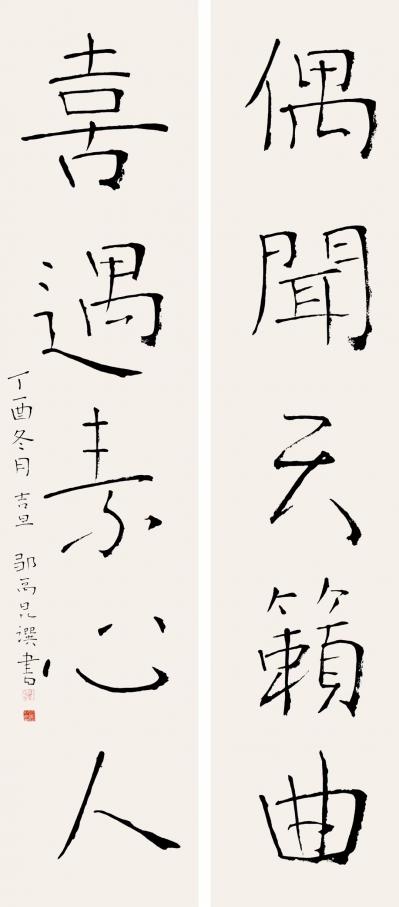 偶聞天籟曲
喜遇素心人
丁酉冬月吉旦 邬高昆撰書